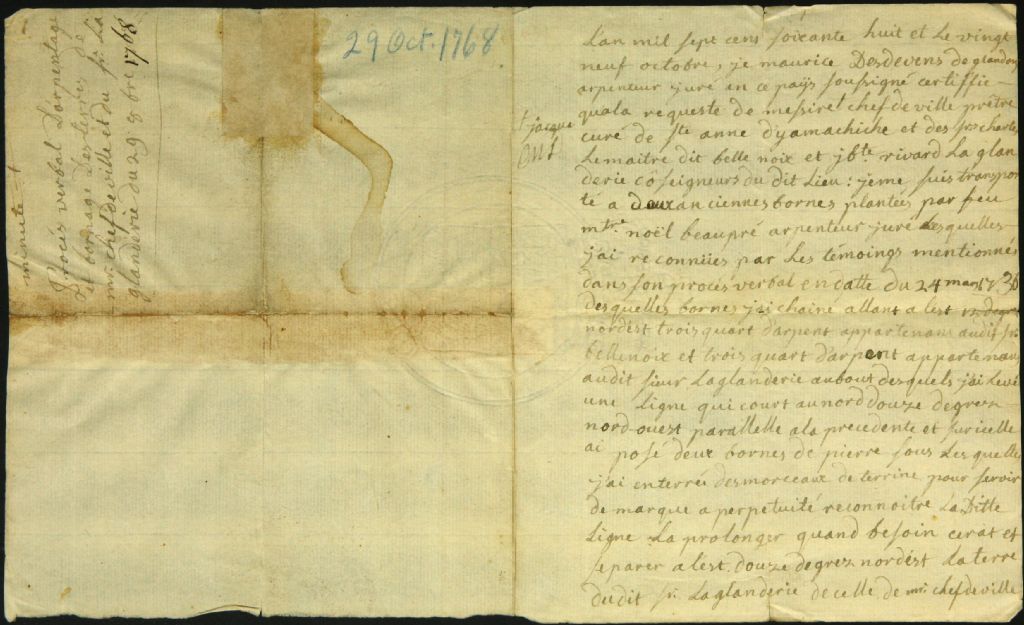 minute
Procès verbal D'arpentage
et bornage Des terres de
mr. chefdeville et du sr. La
glanderie du 29 8bre 1768
29 Oct. 1768
Lan mil sept cens soixante huit et Le vingt
neuf octobre, je maurice Desdevens de glandon
arpenteur juré en ce païs soussigné certiffie
qu'ala requeste de messire chefdeville prêtre
t jacque
curé de Ste anne d'yamachiche et des srs charles
Lemaitre dit belle noix et jbte. rivard La glan
derie côseigneurs du dit Lieu : jeme suis transpor
té a deux anciennes bornes plantées par feu
mtre noël beaupré arpenteur juré Lesquelles
j'ai reconnües par Les témoings mentionnés
dans son procès verbal en datte du 24 mars 1736
desquelles bornes j'ai chainé allant a lest 12 degrez
nordést trois quart d'arpent appartenans audit sr.
bellenoix et trois quart d'arpent appartenans
audit sieur Laglanderie aubout desquels j'ai Levé
une Ligne qui court aunord douze degrez
nord-ouest parallelle ala precedente et suricelle
ai posé deux bornes de pierre sous Lesquelles
j'ai enterré desmorceaux de terrine pour servir
de marque a perpetuité reconnoitre La Ditte
Ligne La prolonger quand besoin cerat et
separer alést douze degrez nordést La terre
dudit sr. Laglanderie decelle de mr. chefdeville